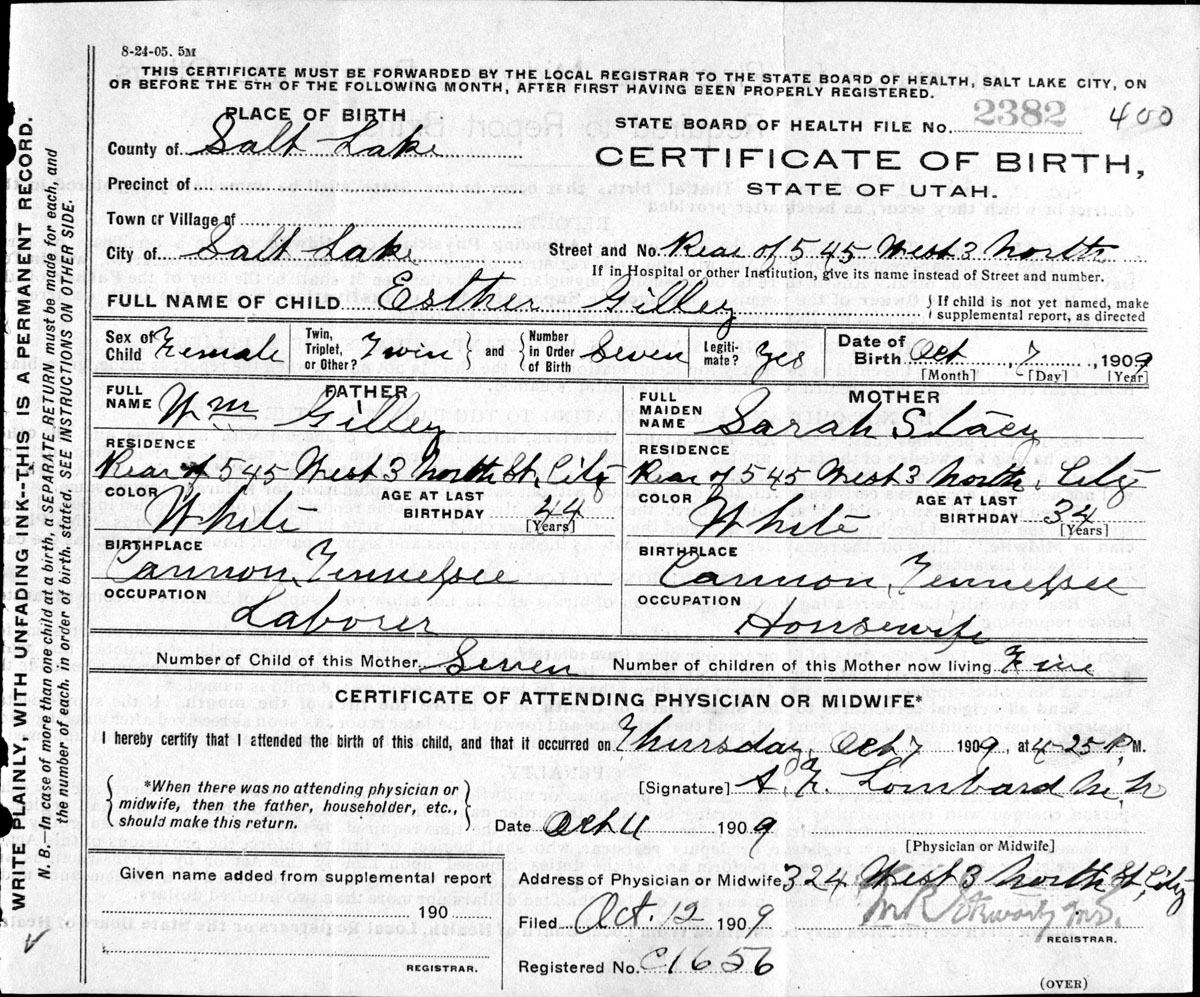 8-24-05. 5M
THIS CERTIFICATE MUST BE FORWARDED BY THE LOCAL REGISTRAR TO THE STATE BOARD OF HEALTH, SALT LAKE CITY, ON
OR BEFORE THE 5TH OF THE FOLLOWING MONTH, AFTER FIRST HAVING BEEN PROPERLY REGISTERED.
PLACE OF BIRTH
STATE BOARD OF HEALTH FILE No. 2382 400
County of Salt Lake
CERTIFICATE OF BIRTH,
STATE OF UTAH.
Precinct of
Town or Village of
City of Salt Lake Street and No. Rear of 545 West 3 North
If in Hospital or other Institution, give its name instead of Street and number.
FULL NAME OF CHILD Esther Gilley { If child is not yet named, make
supplemental report, as directed
Sex of Child Female Twin, Triplet, or Other? Twin } and { Number in Order of Birth Seven Legiti-mate? Yes Date of Birth Oct 7, 1909
[Month] [Day] [Year]
FATHER
FULL NAME Wm Gilley
RESIDENCE
Rear of 545 West 3 North St, City
COLOR White AGE AT LAST BIRTHDAY 44 [Years]
BIRTHPLACE
Cannon, Tennessee
OCCUPATION
Laborer
MOTHER
FULL MAIDEN NAME Sarah Stacy
RESIDENCE
Rear of 545 West 3 North, City
COLOR White AGE AT LAST BIRTHDAY 34 [Years]
BIRTHPLACE
Cannon, Tennessee
OCCUPATION
Housewife
Number of Child of this Mother Seven Number of children of this Mother now living Five
CERTIFICATE OF ATTENDING PHYSICIAN OR MIDWIFE*
I hereby certify that I attended the birth of this child, and that it occurred on Thursday, Oct 7 1909, at 4-25 P M.
{ *When there was no attending physician or
midwife, then the father, householder, etc.,
should make this return. }
[Signature] Lombard
Date Oct 11 1909
[Physician or Midwife]
Given name added from supplemental report
190
REGISTRAR.
Address of Physician or Midwife 324 West 3 North St, City
Filed Oct. 12 1909
REGISTRAR.
Registered No. C1656
(OVER)
WRITE PLAINLY, WITH UNFADING INK--THIS IS A PERMANENT RECORD.
N. B.—In case of more than one child at a birth, a SEPARATE RETURN must be made for each, and
the number of each, in order of birth, stated. SEE INSTRUCTIONS ON OTHER SIDE.